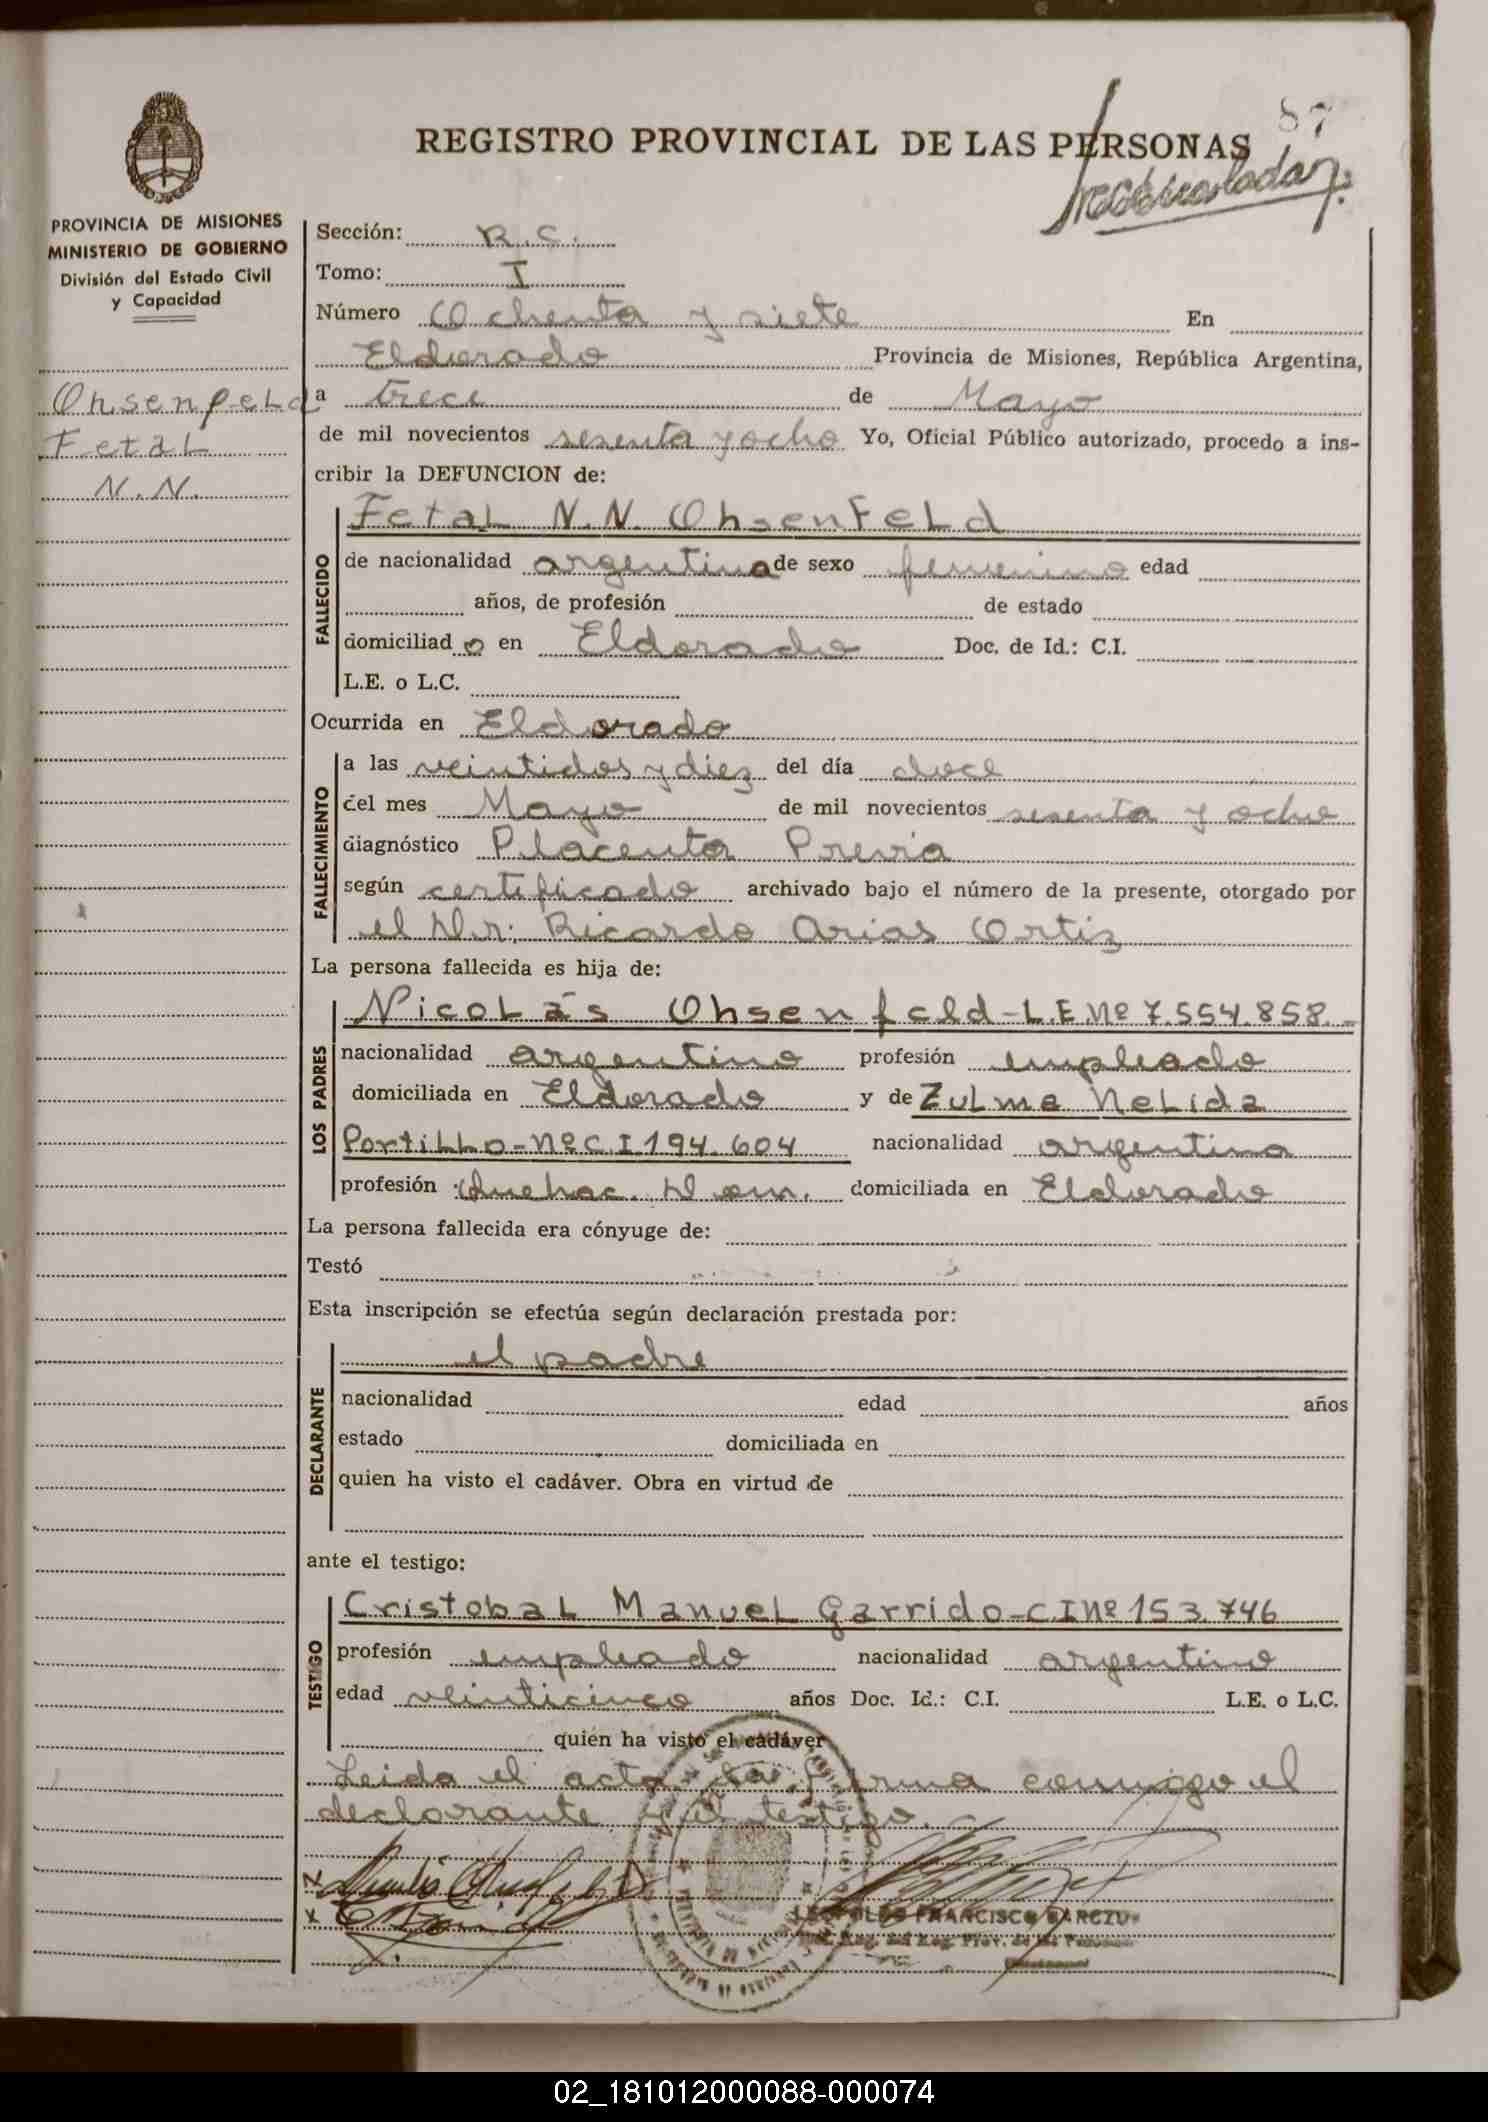 87
REGISTRO PROVINCIAL DE LAS PERSONAS
PROVINCIA DE MISIONES
MINISTERIO DE GOBIERNO
División del Estado Civil
y Capacidad
Ohsenfeld
Fetal
N.N.
Sección: R.C.
Tomo: I
Número Ochenta y siete En
Eldorado Provincia de Misiones, República Argentina,
a trece de Mayo
de mil novecientos sesenta y ocho Yo, Oficial Público autorizado, procedo a ins-
cribir la DEFUNCION de:
FALLECIDO
Fetal N.N. Ohsenfeld
de nacionalidad argentina de sexo femenino edad
años, de profesión de estado
domiciliad o en Eldorado Doc. de Id.: C.I.
L.E. o L.C.
Ocurrida en Eldorado
FALLECIMIENTO
a las veintidos y diez del día doce
del mes Mayo de mil novecientos sesenta y ocho
diagnóstico Placenta Previa
según certificado archivado bajo el número de la presente, otorgado por
el Dr: Ricardo Arias Ortiz
La persona fallecida es hija de:
LOS PADRES
Nicolás Ohsenfeld-L.E Nº 7.554.858.-
nacionalidad argentino profesión empleado
domiciliada en Eldorado y de Zulma Nelida
Portillo-Nº C.I 194.604 nacionalidad argentina
profesión Quehac. Dom. domiciliada en Eldorado
La persona fallecida era cónyuge de:
Testó
Esta inscripción se efectúa según declaración prestada por:
DECLARANTE
el padre
nacionalidad edad años
estado domiciliada en
quien ha visto el cadáver. Obra en virtud de
ante el testigo:
TESTIGO
Cristobal Manuel Garrido-C I Nº 153.746
profesión empleado nacionalidad argentino
edad veinticinco años Doc. Id.: C.I. L.E. o L.C.
quien ha visto el cadáver
Leida el acta la firma conmigo el
declarante y el testigo.
FRANCISCO
02_181012000088-000074